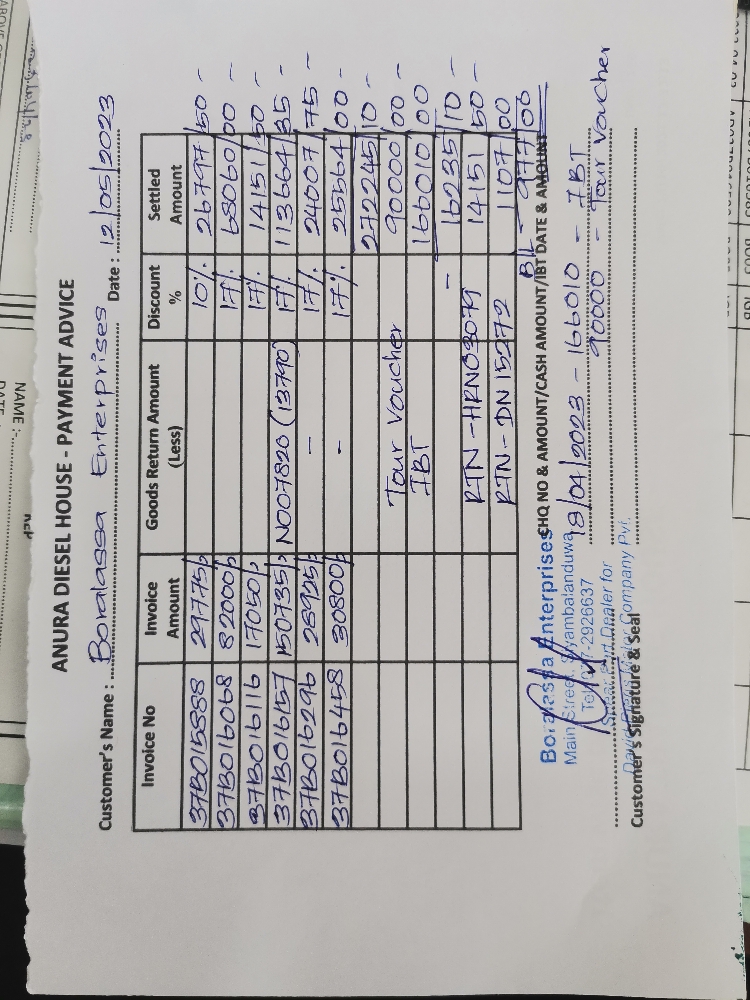 ANURA DIESEL HOUSE - PAYMENT ADVICE
Customer's Name : Boralassa Enterprises Date : 12/05/2023
Invoice No Invoice Amount Goods Return Amount (Less) Discount % Settled Amount
37B015888 29775/= 10% 26797/50 -
37B016068 82000/= 17% 68060/00 -
37B016116 17050/= 17% 14151/50 -
37B016157 150735/= N007820 (13790) 17% 113664/35 -
37B016296 28925/= - 17% 24007/75 -
37B016458 30800/= - 17% 25564/00 -
272245/10 -
Tour Voucher 90000/00 -
IBT 166010/00
- 16235/10 -
RTN - HRN03079 14151/50 -
RTN - DN15272 1107/00
B/L - 977/06
CHQ NO & AMOUNT/CASH AMOUNT/IBT DATE & AMOUNT
18/04/2023 - 166010 - IBT
90000 - Tour Voucher
Boralessa Enterprises
Main Street, Siyambalanduwa
Tel: 077-2926637
Dealer for
David Pieris Motor Company Pvt.
Customer's Signature & Seal
NAME :-